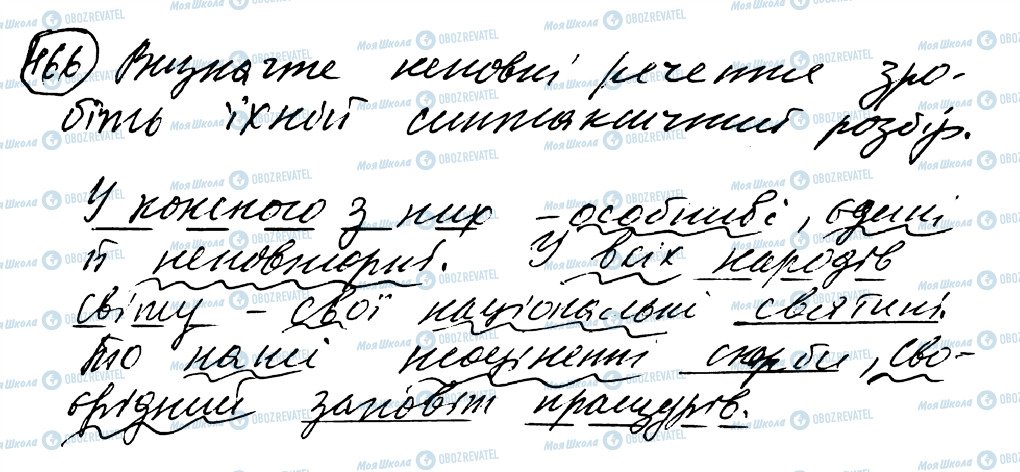 466 Визначте неповні речення зро-
біть їхній синтаксичний розбір.
У кожного з них – особливі, єдині
й неповторні. У всіх народів
світу – свої національні святині.
То наші неоціненні скарби, сво-
єрідний заповіт пращурів.